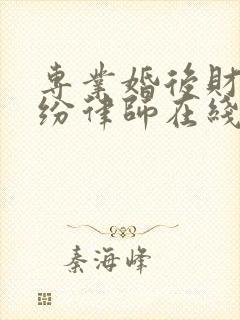 專業婚後財
紛律師在綫
秦海峰